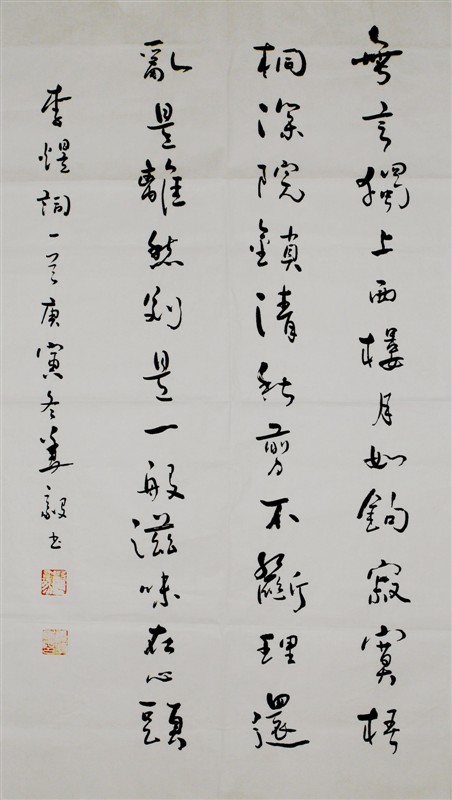 無言獨上西樓月如鉤寂寞梧
桐深院鎖清秋剪不斷理還
亂是離愁別是一般滋味在心頭
李煜詞一首庚寅冬姜毅书